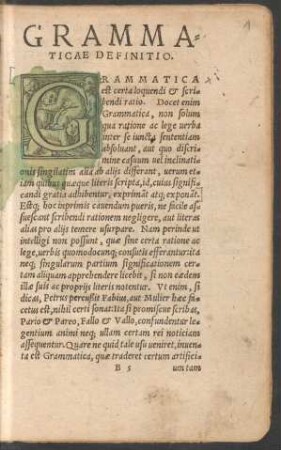 1
GRAMMA-
TICAE DEFINITIO.
GRAMMATICA
est certa loquendi & scri-
bendi ratio. Docet enim
Grammatica, non solum
qua ratione ac lege verba
inter se iuncta sententiam
absoluant, aut quo discri-
mine casuum vel inclinati
onis singula tim alia ab alijs differant, verum et-
iam quibus quæque literis scripta, id, cuius signifi-
candi gratia adhibentur, exprimāt atq; exponāt.
Estq; hoc inprimis cauendum pueris, ne facile as-
suescant scribendi rationem negligere, aut literas
alias pro alijs temere usurpare. Nam perinde ut
intelligi non possunt, quæ sine certa ratione ac
lege, verbis quomodocunq; consutis efferuntur: ita
neq; singularum partium significationem cer-
tam aliquam apprehendere licebit, si non eædem
illæ suis ac proprijs literis notentur. Vt enim, si
dicas, Petrus percussit Fabius, aut Mulier hæc fa-
cetus est, nihil certi sonat: ita si promiscue scribas,
Pario & Pareo, Fallo & Vallo, confundentur le-
gentium animi neq; ullam certam rei noticiam
assequentur. Quare ne quid tale usu veniret, inuen-
ta est Grammatica, quæ traderet certum artifici-
B 5 um tam